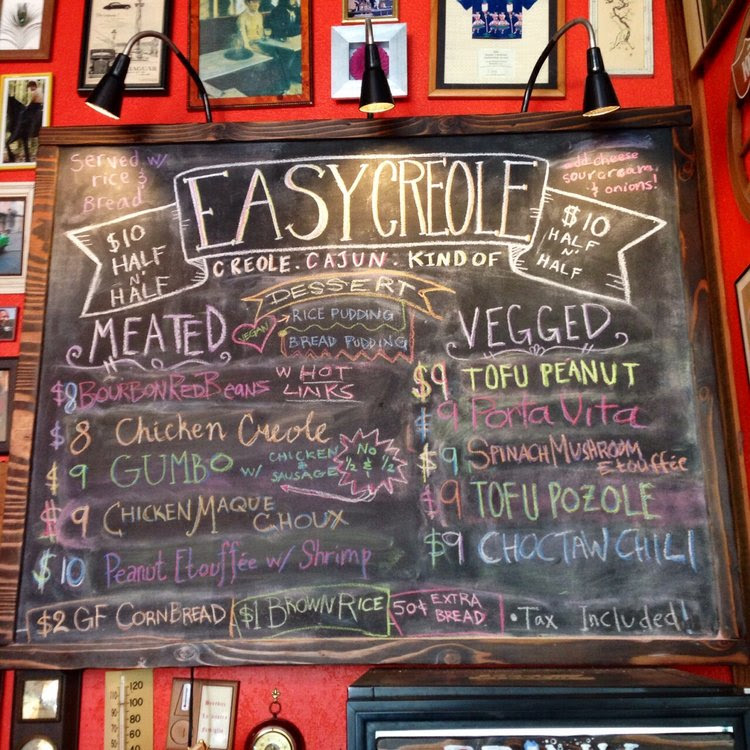 Served w/
rice &
Bread
EASY CREOLE
add cheese
sour cream,
& onions!
$10
HALF
N'
HALF
$10
HALF
N'
HALF
CREOLE. CAJUN. KIND OF
DESSERT
VEGAN!
RICE PUDDING
BREAD PUDDING
MEATED
$8 BOURBON RED BEANS W HOT
LINKS
$8 Chicken Creole
$9 GUMBO w/ CHICKEN &
SAUSAGE
No
1/2 & 1/2
$9 CHICKEN MAQUE
CHOUX
$10 Peanut Etouffée w/ Shrimp
VEGGED
$9 TOFU PEANUT
$9 Porta Vita
$9 SPINACH MUSHROOM
ETOUFFÉE
$9 TOFU POZOLE
$9 CHOCTAW CHILI
$2 GF CORNBREAD
$1 BROWN RICE
50¢ EXTRA
BREAD
• Tax Included!
120
100
80
60
40